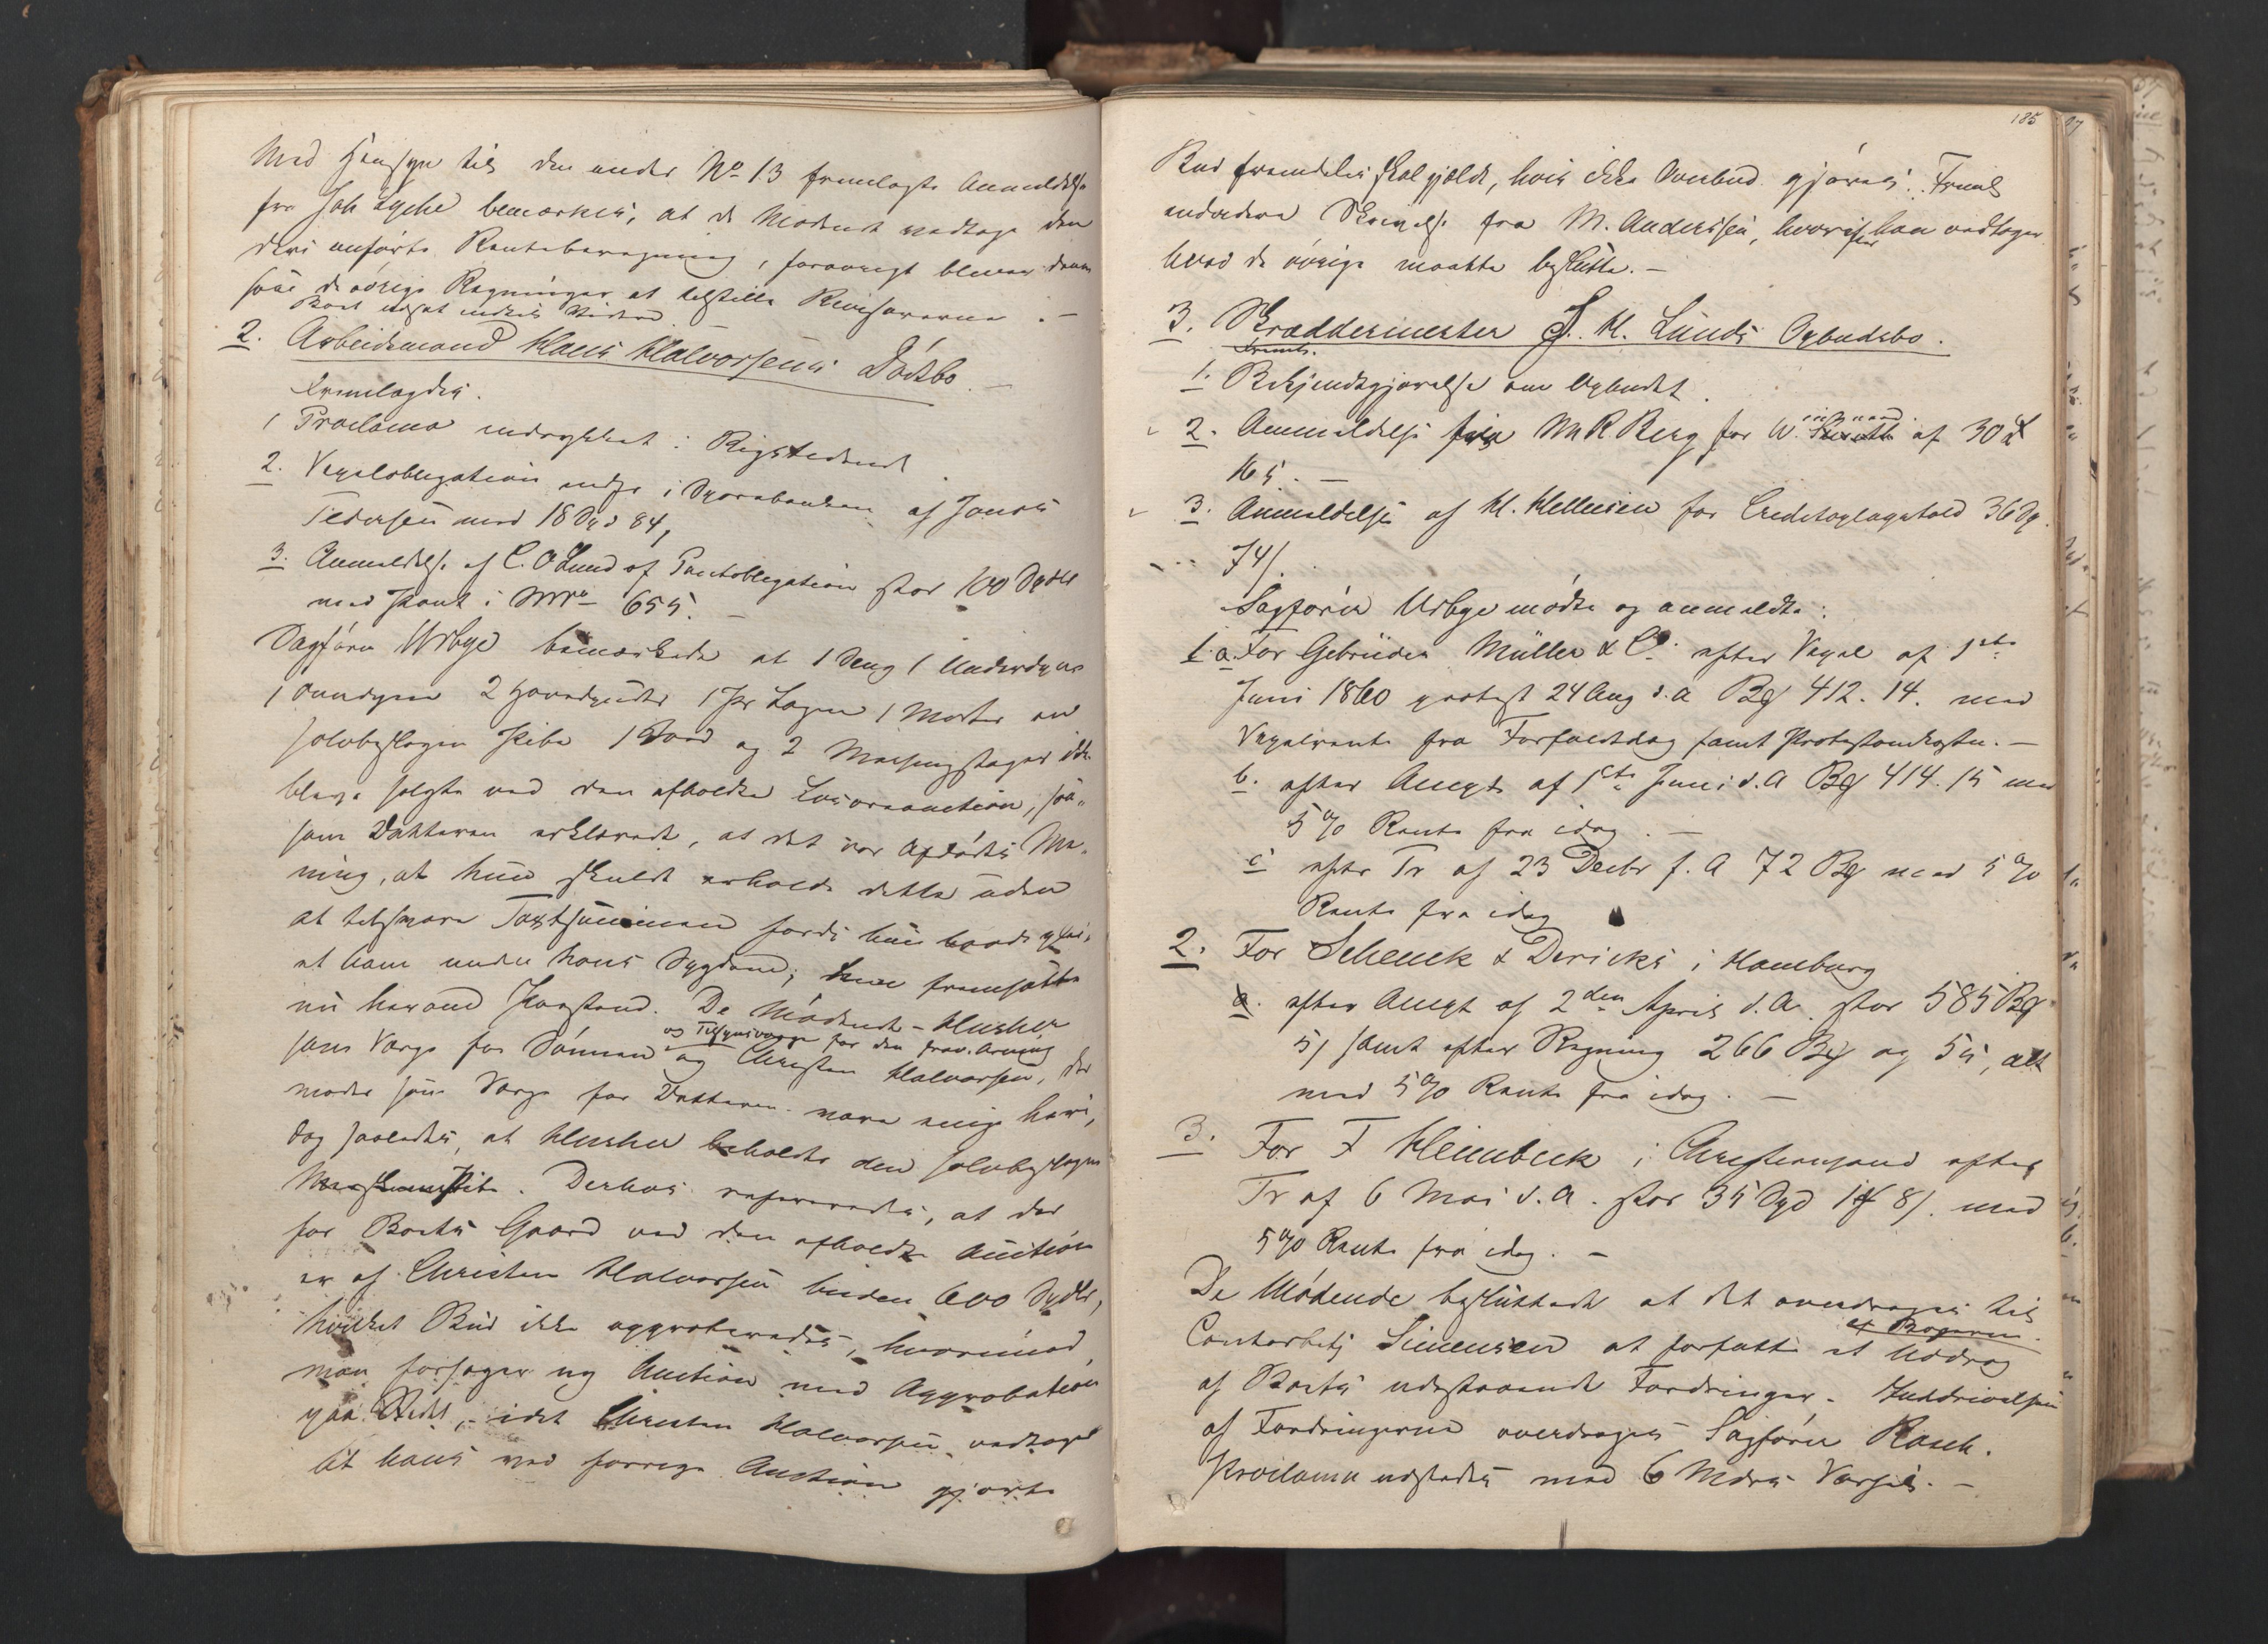 Med Hensyn til den under No 13 fremlagte Anmeldelse
fra Joh Lyche bemærkes, at de Mødende vedtage den
deri anførte Renteberegning, forøvrigt bliver denne
som de øvrige Regninger at tilstille Revisorerne. –
Boet
2. Arbeidsmand Hans Halvorsens Dødsbo. –
Fremlagdes.
1 Proclama indrykket i Rigstidende
2. Vexelobligation indfr i Sparebanken af Jonas
Pedersen med 18 Spd 84,
3. Anmeldelse af C. O Lund af Pantobligation stor 100 Spdlr
med Pant i Mr No 655. –
Sagfører Urbye bemærkede at 1 Seng 1 Underdyne
1 Overdyne 2 Hovedpuder 1 Pr Lagen 1 Morter en
sølvbeslagen Pibe 1 Bord og 2 Messingstager ikke
bleve solgte ved den afholdte Løsøreauction, saa-
som Datteren erklærede, at det var Afdødes Me-
ning, at hun skulde erholde dette uden
at tilsvare Taxtsummen fordi hun havde plei-
et ham under hans Sygdom; hun fremsatte
nu herom Paastand. De Mødende – Klusher
som Værge for Sønnen og Christen Halvorsen, der
og Tilsynsværge for den frav. Arving
møder som Værge for Datteren. vare enige heri,
dog saaledes, at Klusher beholdt den sølvbeslagne
Merskumspibe. Derhos refereredes, at der
for Boets Gaard ved den afholdte Auction
er af Christen Halvorsen buden 600 Spdlr,
hvilket Bud ikke approberedes, hvorimod,
man forsøger ny Auction med Approbation
paa Stedet, idet Christen Halvorsen vedtager
at hans ved forrige Auction gjorte
185
Bud fremdeles skal gjælde, hvis ikke Overbud gjøres. Freml
endvidere Skrivelse fra M. Anderssen, hvorefter han vedtager
hvad de øvrige maatte beslutte. –
3. Skræddermester S. H. Lunds Opbudsbo.
Freml.
1. Bekjendtgjørelse om Opbudet.
2. Anmeldelse fra M R Berg for W. af 30
16 s. –
3. Anmeldelse af H. Hellesen for Creditoplagstold 36 Sp
74/.
Sagfører Urbye mødte og anmeldte:
1. a. For Gebrüder Müller & Co. efter Vexel af 1ste
Juni 1860 protest 24 Aug d. A B 412. 14. med
Vexelrente fra Forfaldsdag samt Protestomkostn. –
b. efter Accept af 1ste Juni d. A B 414. 15 med
5 % Rente fra idag. –
c efter Tr af 23 Decbr f. A 72 B med 5 %
Rente fra idag
2. For Schenck & Dericks i Hamburg
a. efter Accept af 2den April d. A. stor 585 B
5/ samt efter Regning 266 B og 5 s, alt
med 5 % Rente fra idag. –
3. For F Heimbeck i Christianssand efter
Tr af 6 Mai d. A. stor 35 Spd 1 8/. med
5 % Rente fra idag. –
De Mødende besluttede at det overdrages til
Contorbetj Simensen at forfatte et Uddrag
af Bøgerne.
af Boets udestaaende Fordringer. Inddrivelsen
af Fordringerne overdrages Sagfører Rasch.
Proclama udstedes med 6 Mdrs Varsel. –